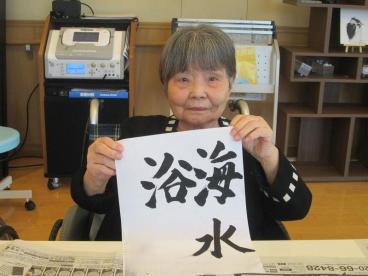 海水
浴
20-66-8428